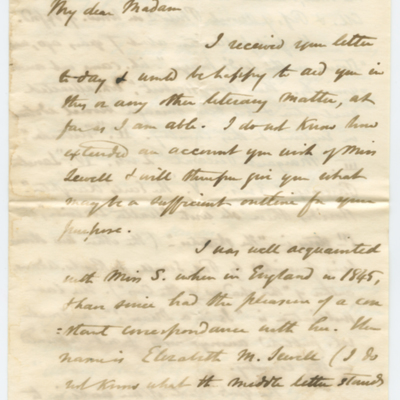 My dear Madam
I received your letter
to day & would be happy to aid you in
this or any other literary matter, as
far as I am able. I do not know how
extended an account you wish of Miss
Sewell & will therefore give you what
may be a sufficient outline for your
purpose.
I was well acquainted
with Miss S. when in England in 1845,
& have since had the pleasure of a con
=stant correspondence with her. Her
name is Elizabeth M. Sewell (I do
not know what the middle letter stands